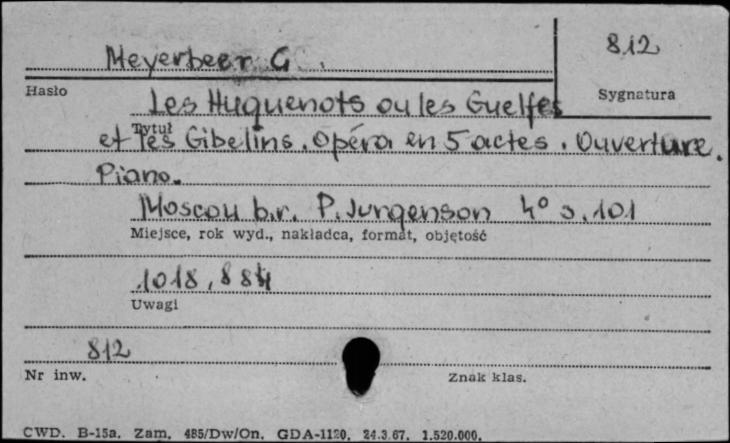 Meyerbeer G.
812
Hasło
Sygnatura
Les Huguenots ou les Guelfes
Tytuł
et les Gibelins. Opéra en 5 actes. Ouverture.
Piano.
Moscou b.r. P. Jurgenson 4° s. 101
Miejsce, rok wyd., nakładca, format, objętość
1018, 884
Uwagi
812
Nr inw.
Znak klas.
CWD. B-15a. Zam. 485/Dw/On. GDA-1120. 24.3.67. 1.520.000.